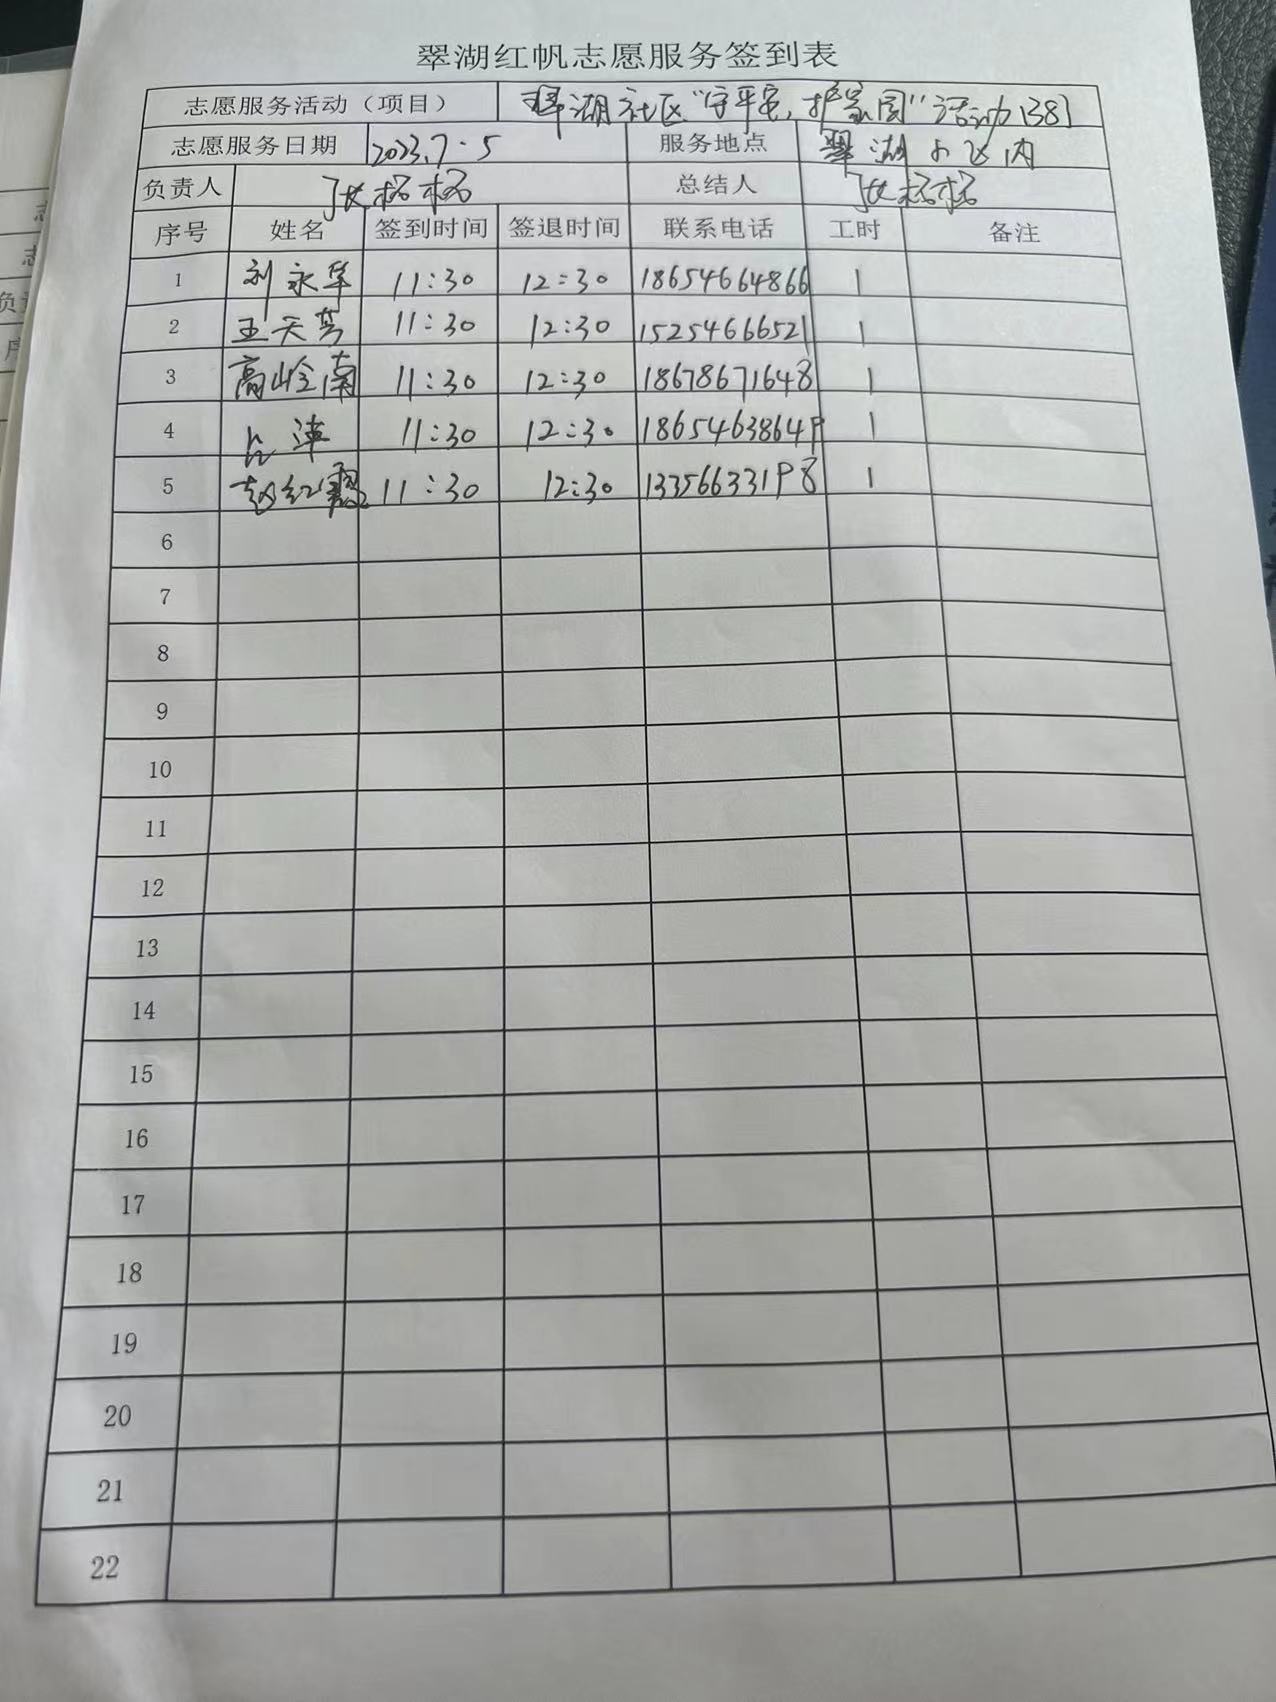 翠湖红帆志愿服务签到表
志愿服务活动（项目） 翠湖社区“守平安，护家园”活动[38]
志愿服务日期 2023.7.5 服务地点 翠湖小区内
负责人 张杨杨 总结人 张杨杨
序号 姓名 签到时间 签退时间 联系电话 工时 备注
1 刘永华 11:30 12:30 18654664866 1
2 王天芳 11:30 12:30 15254666521 1
3 高岭南 11:30 12:30 18678671648 1
4 11:30 12:30 18654638649 1
5 赵红霞 11:30 12:30 13356633198 1
6
7
8
9
10
11
12
13
14
15
16
17
18
19
20
21
22